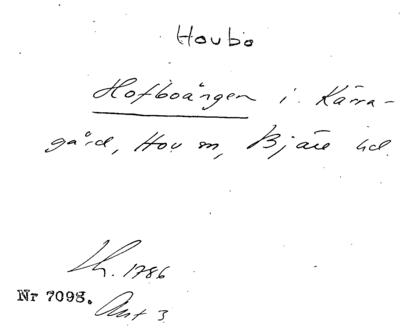 Houbo
Hofboängen i Kärra-
gård, Hov sn, Bjäre hd.
Lh. 1786
Nr 7098. Akt 3